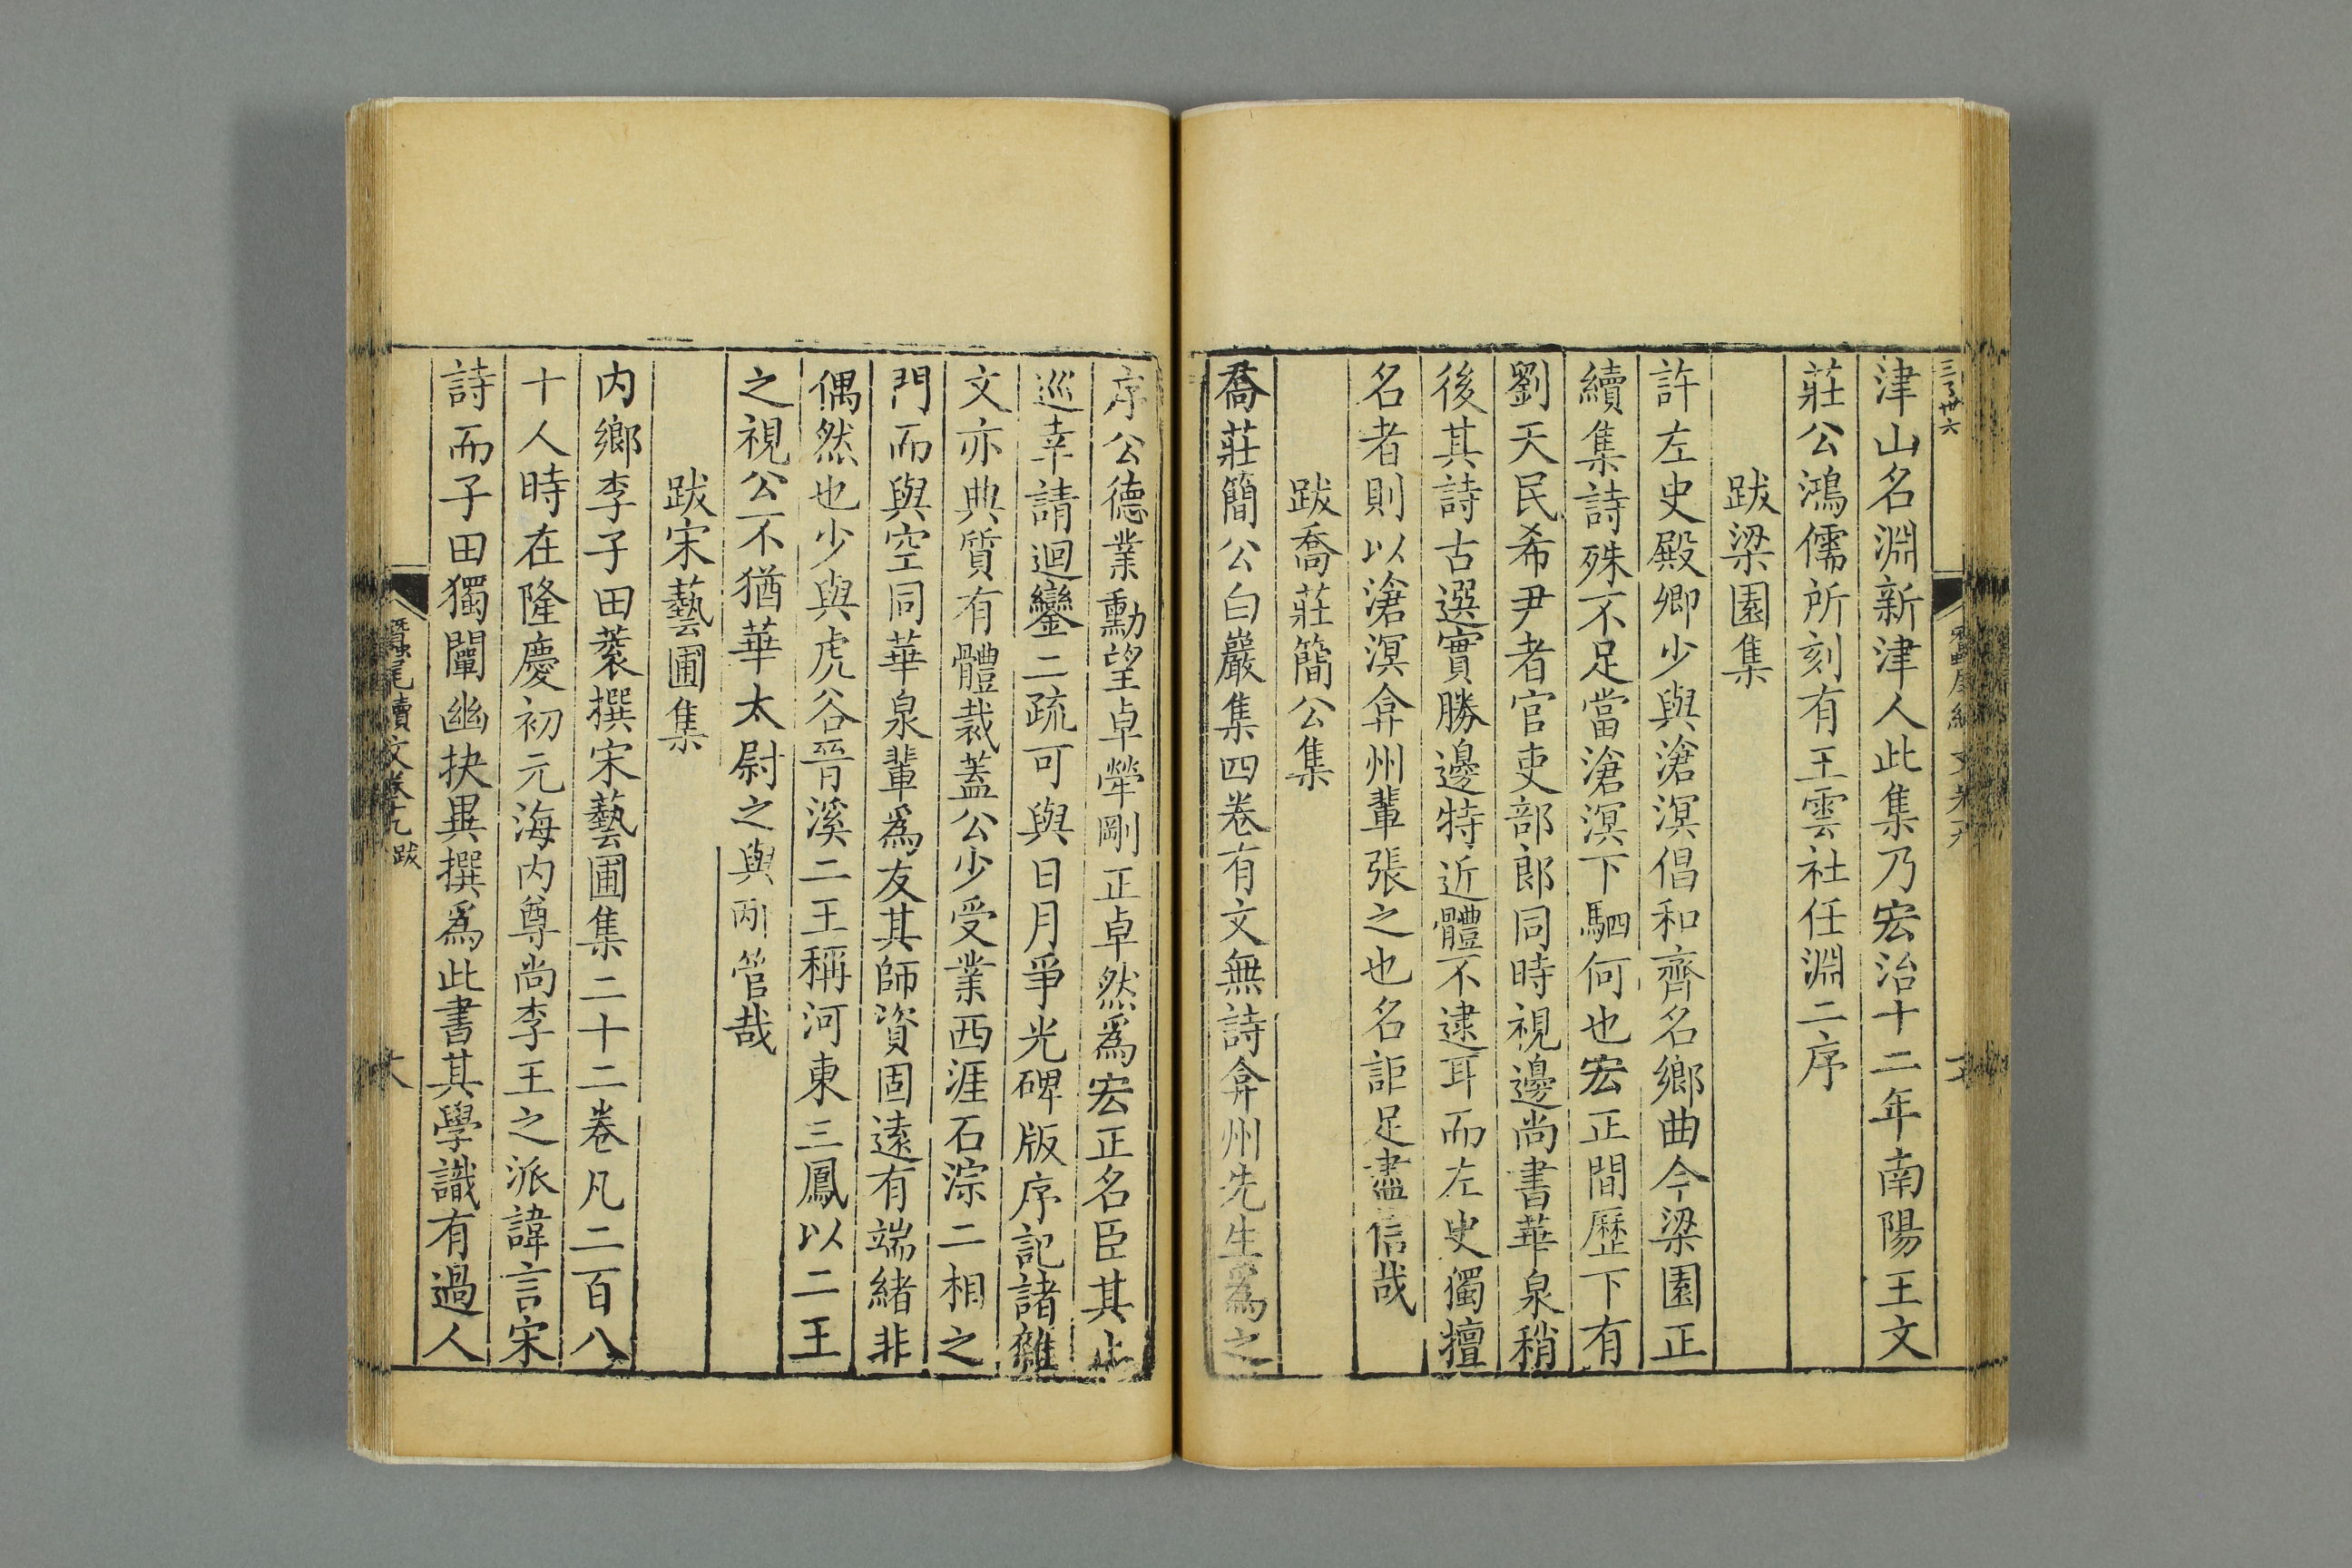 津山名淵新津人此集乃宏治十二年南陽王文
莊公鴻儒所刻有王雲社任淵二序
跋梁園集
許左史殿卿少與滄溟倡和齊名鄉曲今梁園正
續集詩殊不足當滄溟下駟何也宏正間歷下有
劉天民希尹者官吏部郎同時視邊尚書華泉稍
後其詩古選實勝邊特近體不逮耳而左史獨擅
名者則以滄溟弇州輩張之也名詎足盡信哉
跋喬莊簡公集
喬莊簡公白巖集四卷有文無詩弇州先生爲之
序公德業勳望卓犖剛正卓然爲宏正名臣其止
巡幸請迴鑾二疏可與日月爭光碑版序記諸雜
文亦典質有體裁蓋公少受業西涯石淙二相之
門而與空同華泉輩爲友其師資固遠有端緒非
偶然也少與虎谷晉溪二王稱河東三鳳以二王
之視公不猶華太尉之與邴管哉
跋宋藝圃集
内鄉李子田蓘撰宋藝圃集二十二卷凡二百八
十人時在隆慶初元海内尊尚李王之派諱言宋
詩而子田獨闡幽抉異撰爲此書其學識有過人
蠶尾續文卷十九 跋